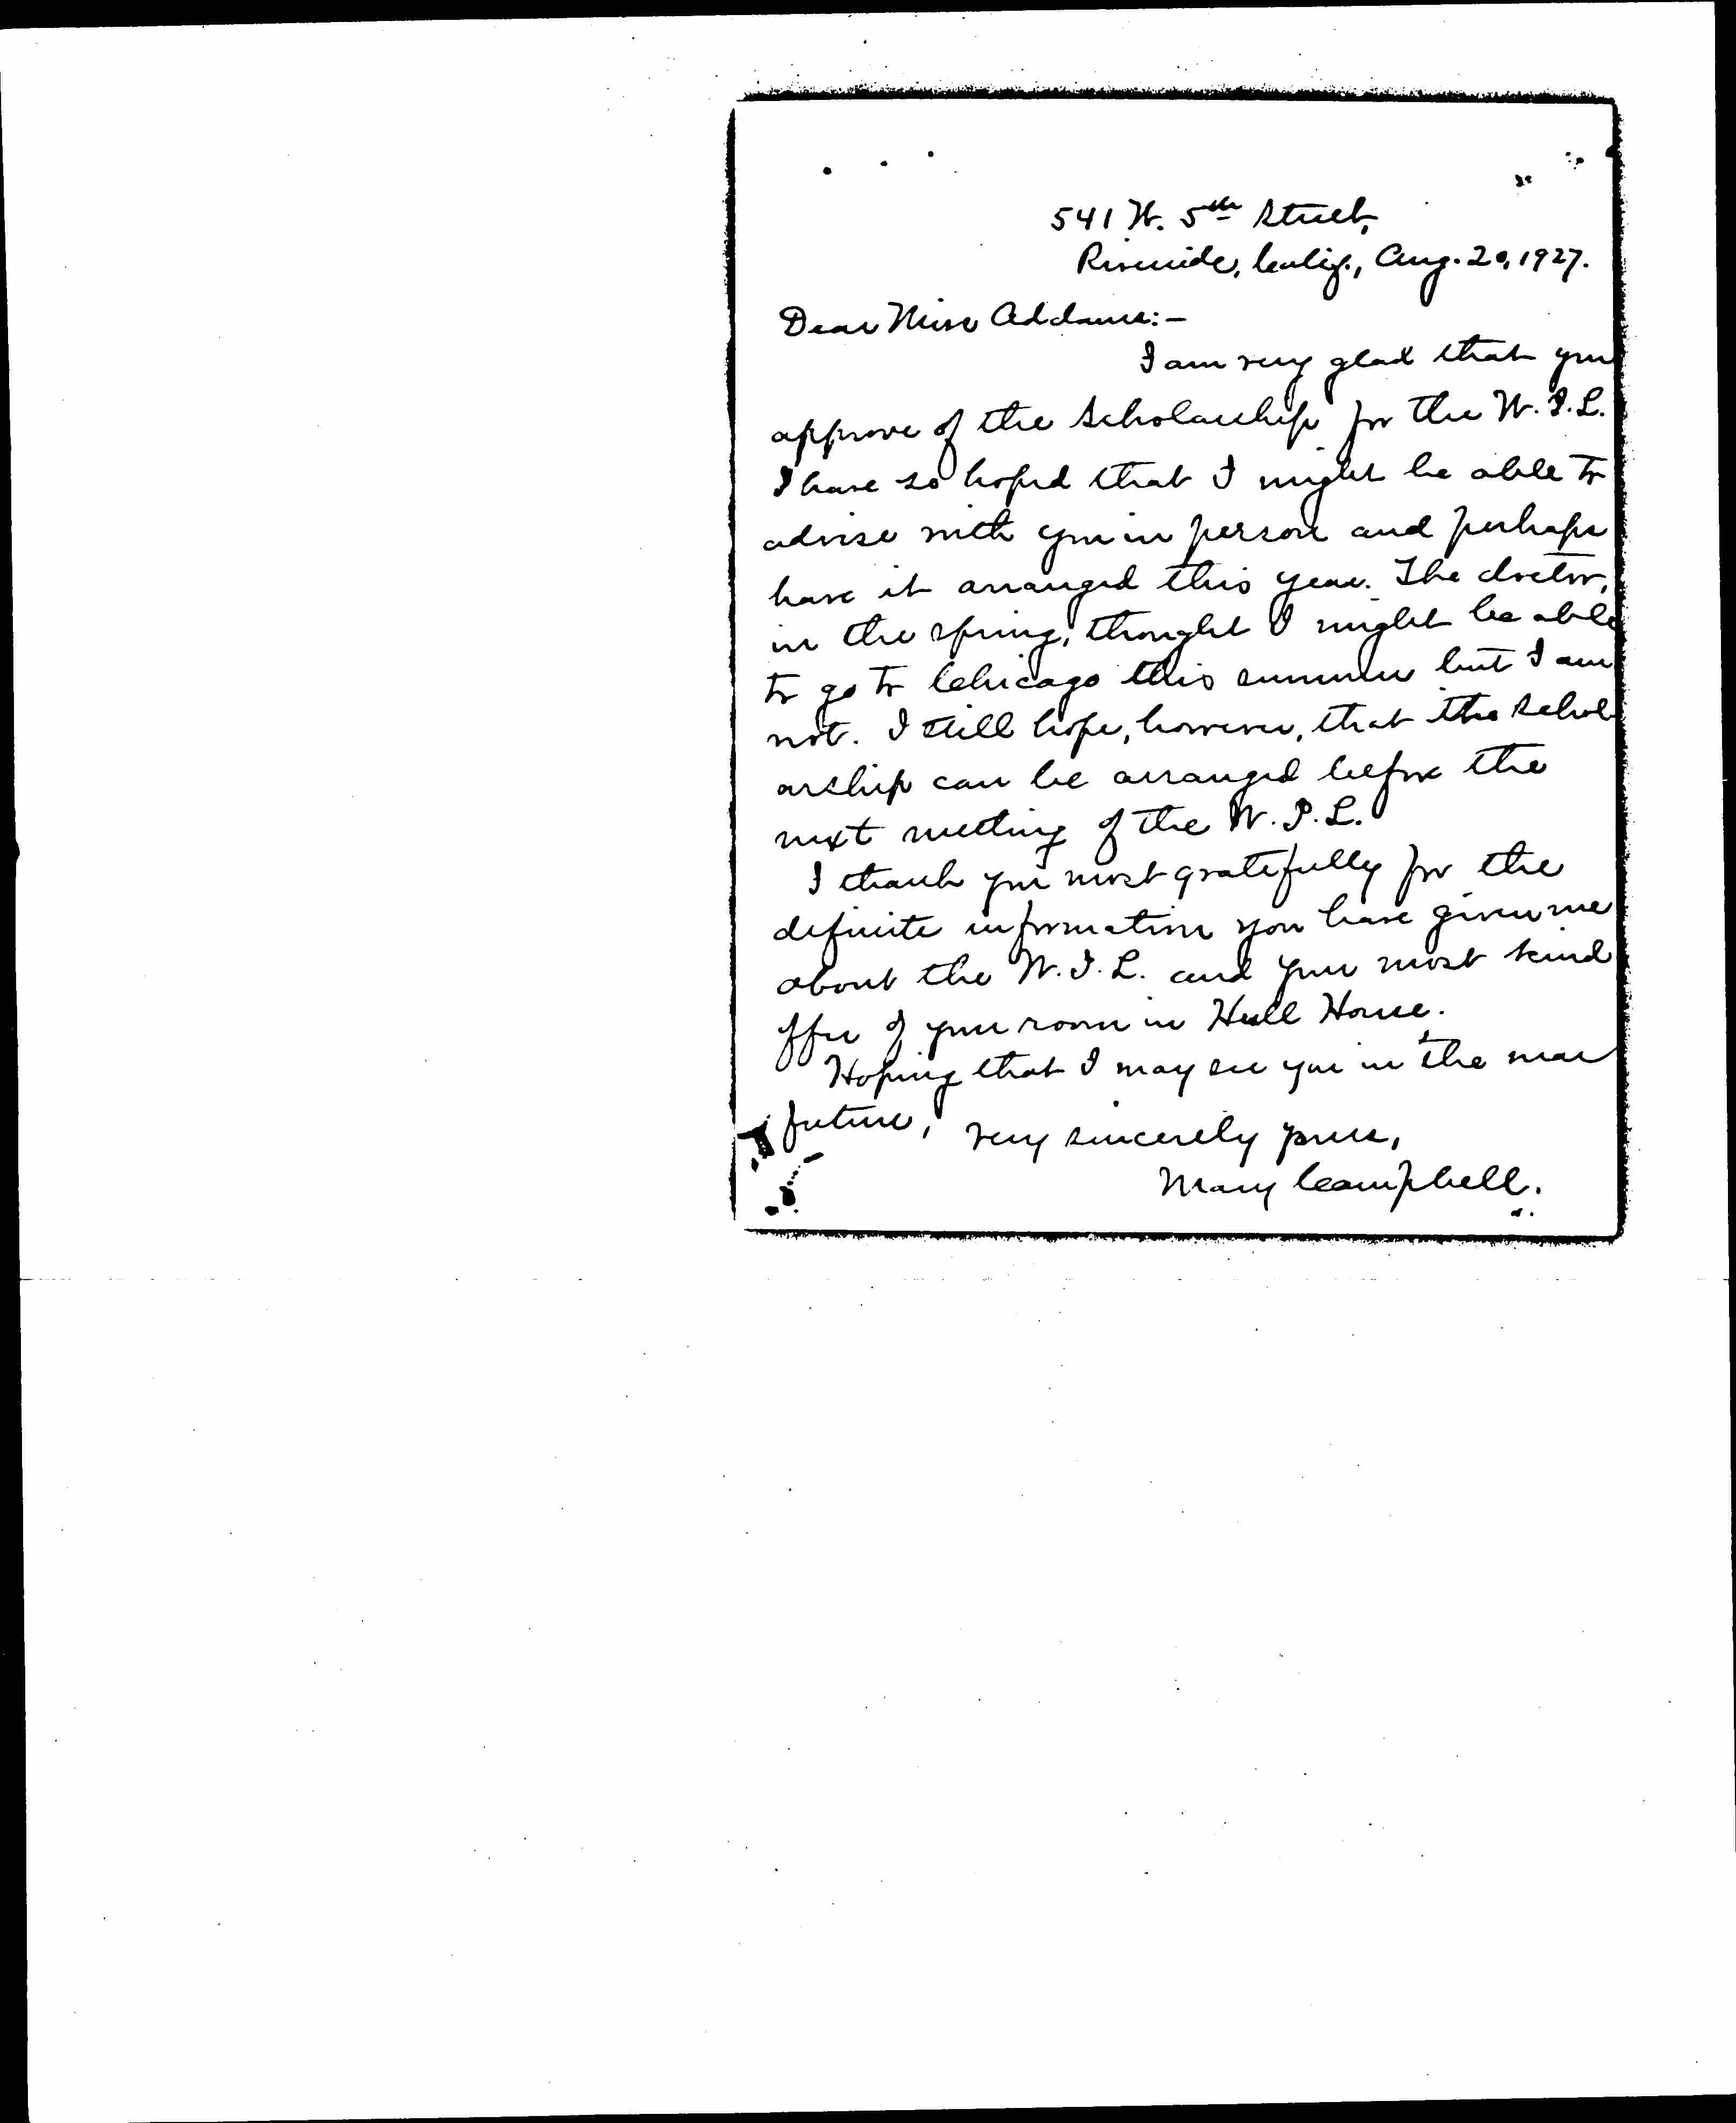 541 W. 5th Street,
Riverside, Calif., Aug. 20, 1927.
Dear Miss Addams:-
I am very glad that you
approve of the scholarship for the W.I.L.
I have so hoped that I might be able to
advise with you in person and perhaps
have it arranged this year. The doctor,
in the spring, thought I might be able
to go to Chicago this summer but I am
not. I still hope, however, that the schol
arship can be arranged before the
next meeting of the W.P.L.
I thank you most gratefully for the
definite information you have given me
about the W.I.L. and your most kind
offer of your room in Hull House.
Hoping that I may see you in the near
future,
very sincerely yours,
Mary Campbell.